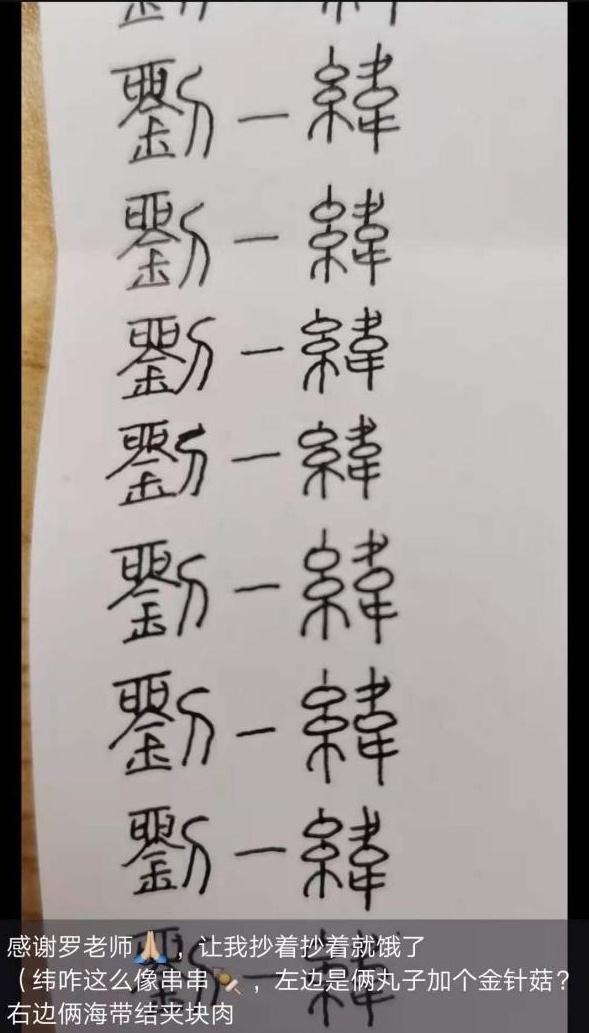 劉一緯
劉一緯
劉一緯
劉一緯
劉一緯
劉一緯
劉一緯
感谢罗老师🙏🏻，让我抄着抄着就饿了
（纬咋这么像串串🍢，左边是俩丸子加个金针菇？
右边俩海带结夹块肉